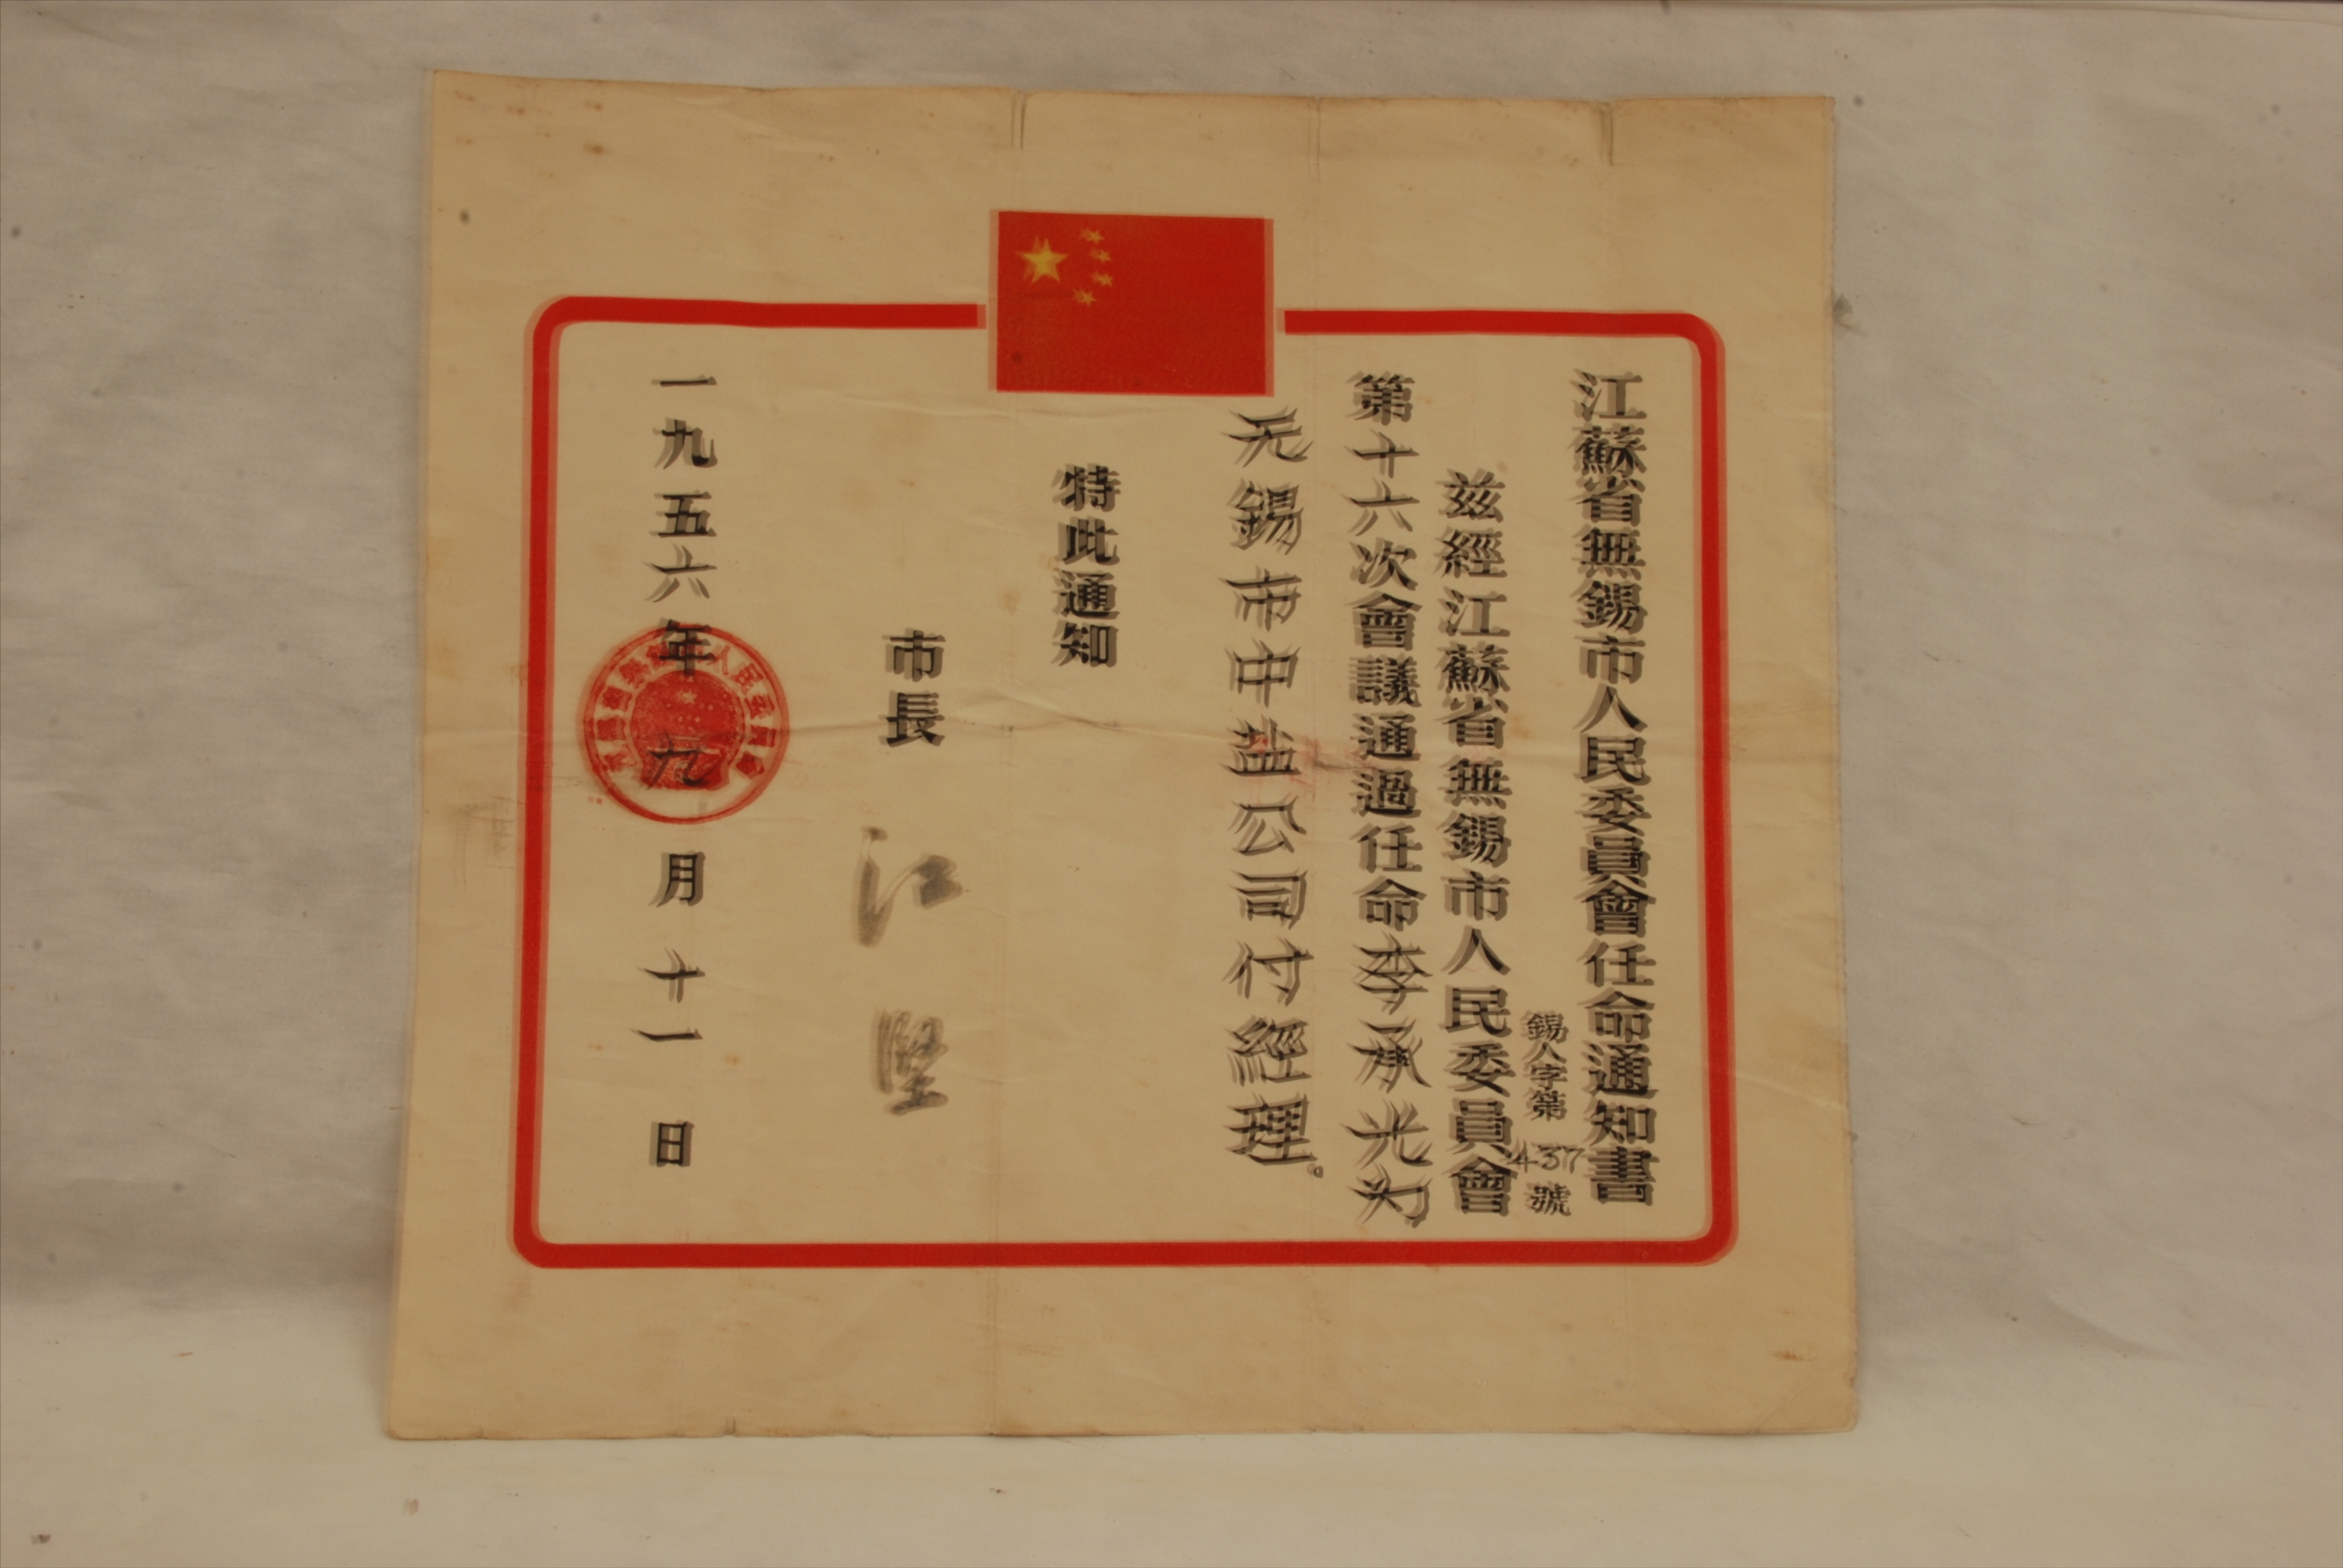 江蘇省無錫市人民委員會任命通知書
錫人字第437號
兹經江蘇省無錫市人民委員會
第十六次會議通過任命李承光为
无錫市中盐公司付經理。
特此通知
市長 江坚
一九五六年九月十一日